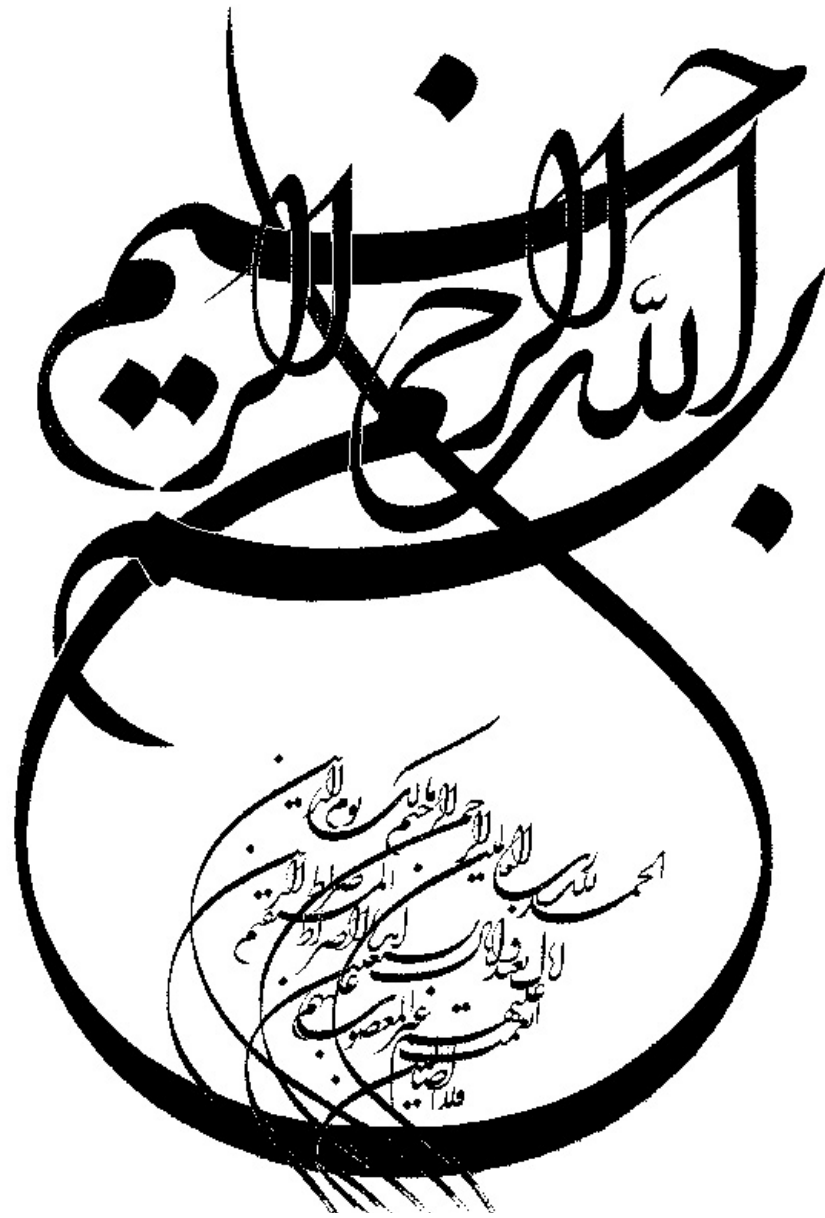 بسم
الله الرحمن الرحيم
الحمد لله رب العالمين الرحمن الرحيم مالك يوم الدين
اياك نعبد واياك نستعين اهدنا الصراط المستقيم صراط الذين
انعمت عليهم غير المغضوب عليهم
ولا الضالين